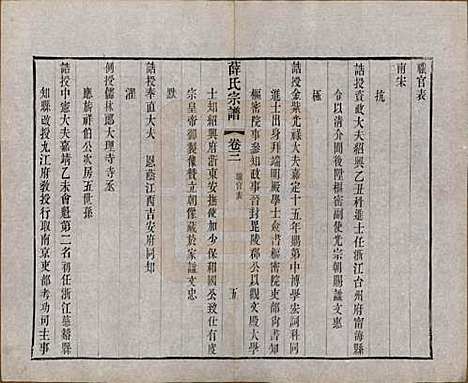 職官表
南宋
抗
誥授資政大夫紹興乙丑科進士任浙江台州府甯海縣
以淸介聞後歷樞密副使光宗朝賜諡文惠
極
誥授金紫光祿大夫嘉定十五年賜第中博學宏詞科同
進士出身拜端明殿學士僉書樞密院事尚書
樞密院事參知政事晉封毘陵郡公以觀文殿大學
薛氏宗譜
卷三
職官表
五
士知紹興府浙東安撫使少保和國公致仕諡文忠
宗皇帝御製像贊立朝像藏於家
默
誥授奉直大夫 恩蔭江西吉安府同知
濯
例授儒林郎大理寺寺丞
應旂祥伯公次房五世孫
誥授中憲大夫嘉靖乙未會魁第二名初任浙江慈谿縣
知縣改授九江府敎授行取南京吏部考功司主事